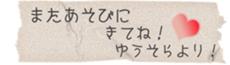 またあそびに
きてね！
ゆうそらより！